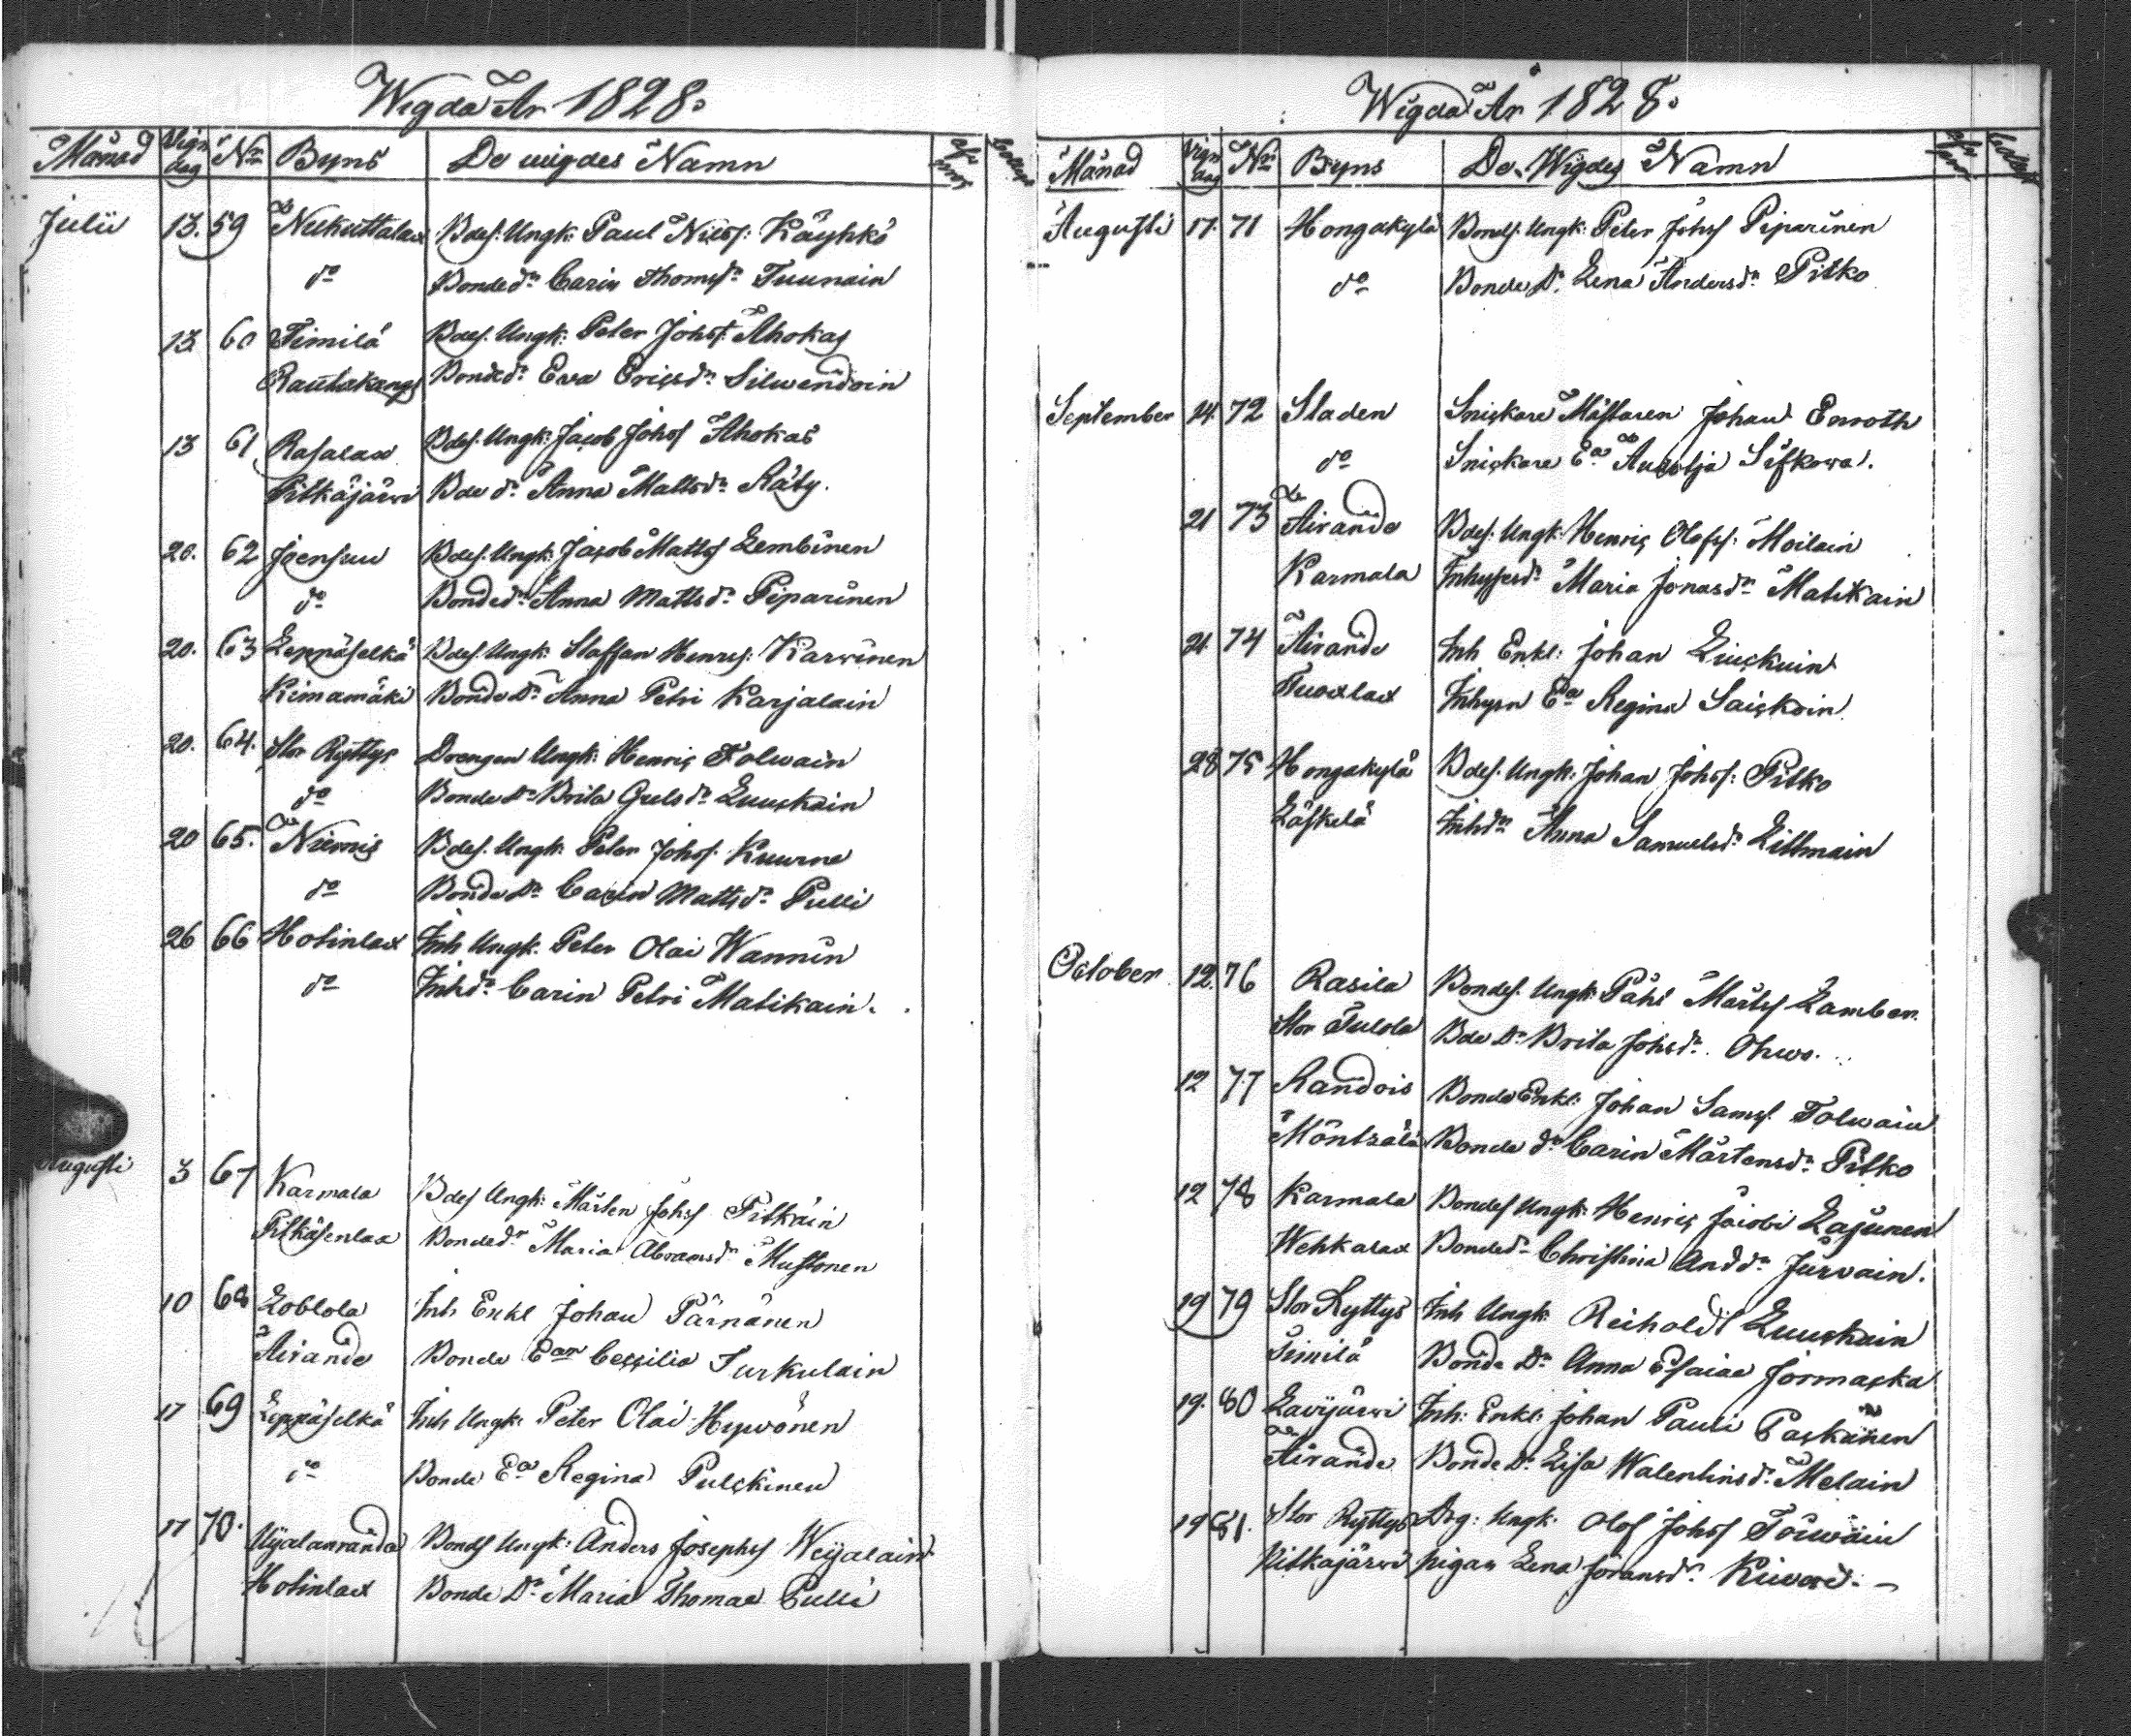 Wigda År 1828.
Månad Vign dag No Byns De wigdes Namn
Julii 13. 59 Nukuttalax Bdes. Ungk: Paul Nilss: Käyhkö
do Bonded:r Carin Thomsd:r Tuunain
13. 60 Timilä Bdes. Ungk: Peter Johss: Ahokas
Rautakangs Bonded:r Eva Ericsd:r Silwendoin
13 61 Rasalax Bdes. Ungk: Jacob Johss Ahokas
Pitkäjärwi Bde d:r Anna Mattsd:r Räty.
20. 62 Joensuu Bdes. Ungk: Jacob Matts Lembinen
do Bonded:r Anna Mattsd:r Piparinen
20. 63 Leppäselkä Bdes. Ungk: Staffan Henrs: Karwinen
Kimamäki Bonde D:r Anna Petri Karjalain
20. 64. Stor Ryttys Drengen Ungk: Henric Tolwain
do Bonde D:r Brita Grelsd:r Luuckain
20 65. Niemis Bdes. Ungk: Peter Johss. Kuurne
do Bonde D:r Carin Mattsd:r Pulli
26 66 Hotinlax Inh Ungk. Peter Olai Wannin
do Inhd:r Carin Petri Matikain.
Augusti 3 67 Karmala Bdes Ungk: Mårten Johss Pitkäin
Pitkäsenlax Bonded:r Maria Abramsd:r Mustonen
10 68 Loblola Inh Enkl Johan Pärnänen
Airande Bonde E:an Cecilia Turkulain
17 69 Leppäselkä Inh Ungk: Peter Olai Hypönen
do Bonde E:a Regina Pulckinen
17 70. Uijalanranda Bonds Ungk: Anders Josephs Weijalain
Hotinlax Bonde D:r Maria Thomae Pulli
Wigda År 1828.
Månad Vign dag No Byns De Wigdes Namn
Augusti 17. 71 Hongakylä Bonds. Ungk: Peter Johss Piparinen
do Bonde D:r Lena Andersd:r Pitko
September 14. 72 Staden Snickare Mästaren Johan Enroth
do Snickare E:a Sifkowa.
21 73 Airande Bdes. Ungk: Henric Olofss: Moilain
Karmala Inhysesd:r Maria Jonasd:r Matikain
21. 74 Airande Inh Enkl: Johan Liuckuin
Tuoxlax Inhysn E:a Regina Saickoin
28 75 Hongakylä Bdes. Ungk: Johan Johss: Pitko
Läskelä Inhd:r Anna Samuelsd:r Littmain
October 12. 76 Rasila Bondes. Ungk: Påhl Mårtss Lamber.
Stor Tulola Bde D:r Brita Johsd:r Ohwo.
12 77 Randois Bonde Enkl: Johan Sams. Tolwain
Möntsälä Bonde d:r Carin Mårtensd:r Pitko
12 78 Karmala Bondes Ungk: Henric Jacobi Lajunen
Wehkalax Bonded:r Christina Andd:r Jurvain.
19 79 Stor Ryttys Inh Ungk. Reihold Luuckain
Timilä Bonde D:r Anna Esaiae Jormacka
19. 80 Lavijärwi Inh: Enkl: Johan Pauli Packanen
Airande Bonde D:r Lisa Walentinsd:r Melain
19 81. Stor Ryttys Drg: Ungk. Olof Johss Törwäin
Pitkäjärwi pigan Lena Göransd:r